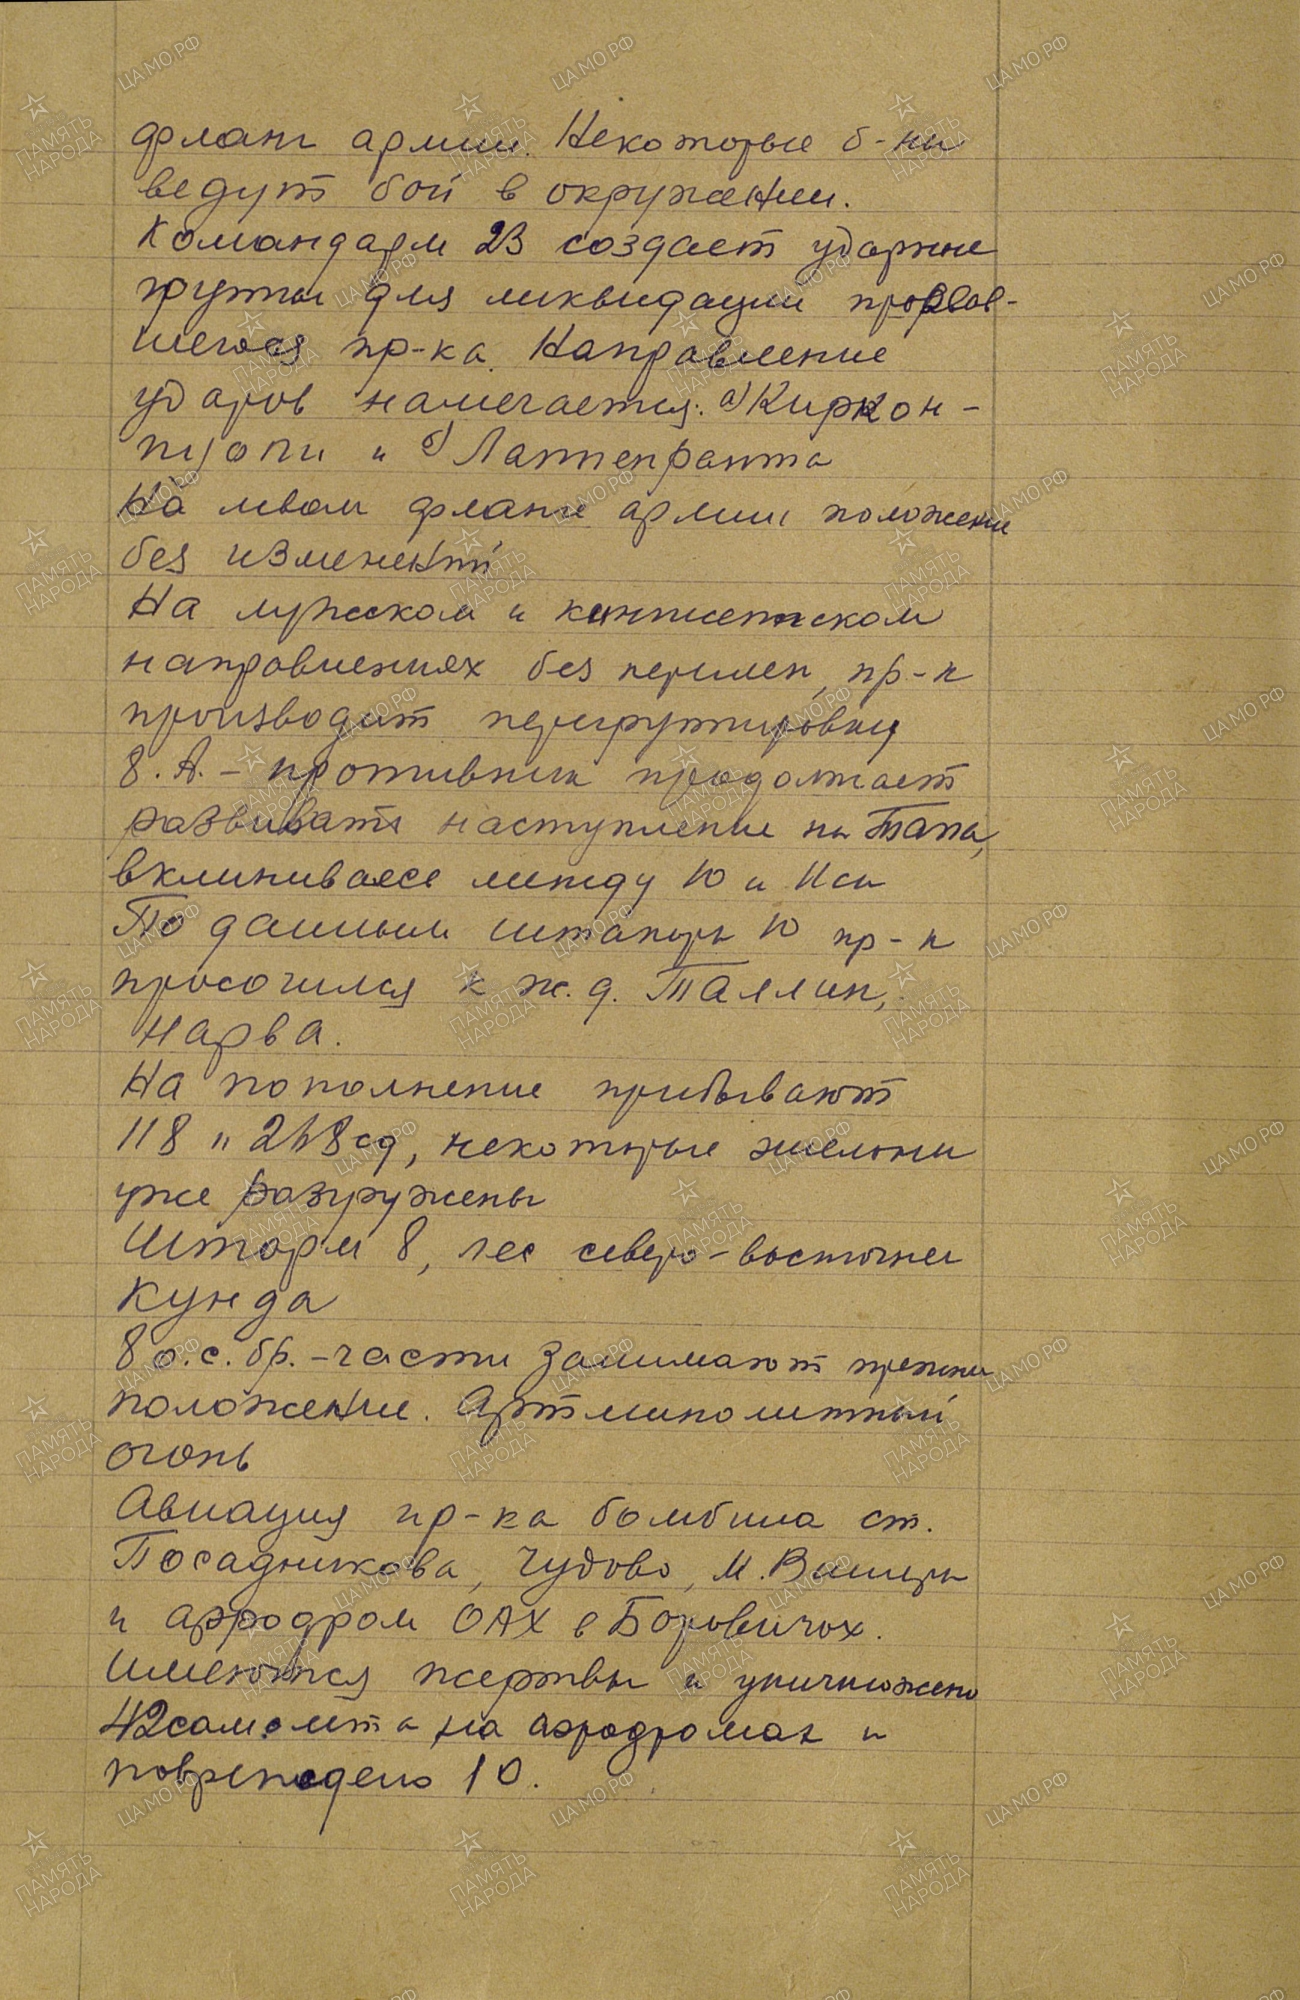 фланг армии. Некоторые б-ны
ведут бой в окружении.
Командарм 23 создает ударные
группы для ликвидации прорвав-
шегося пр-ка. Направление
ударов намечается: а) Киркон-
пуоли и б) Лаппенранта
На левом фланге армии положение
без изменений
На лужском и кингисепском
направлениях без перемен, пр-к
производит перегруппировку
8.А. – противник продолжает
развивать наступление на Тапа,
вклиниваясь между 10 и 11 ск
По данным штакора 10 пр-к
просочился к ж.д. Таллин,
Нарва.
На пополнение прибывают
118 и 248 сд, некоторые эшелоны
уже разгружены
Штарм 8, лес северо-восточнее
Кунда
8 о.с.бр. – части занимают прежнее
положение. Артминометный
огонь
Авиация пр-ка бомбила ст.
Посадникова, Чудово, М. Вишера
и аэродром ОАХ в Боровичах.
Имеются жертвы и уничтожено
42 самолета на аэродромах и
повреждено 10.
ПАМЯТЬ НАРОДА
ЦАМО.РФ